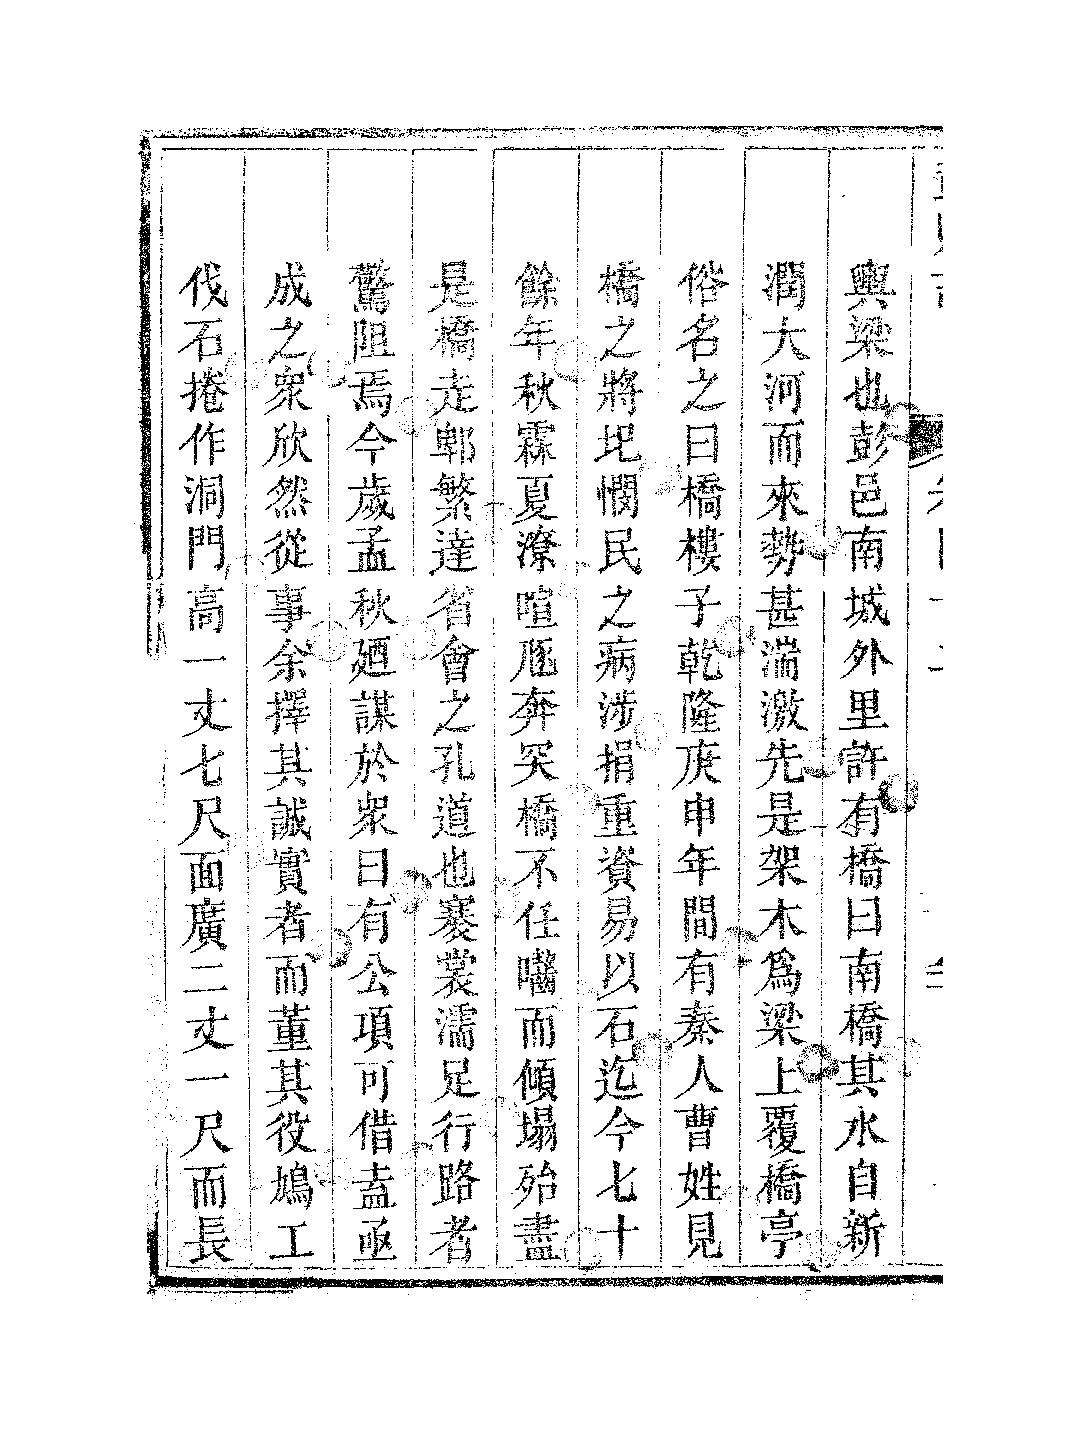 輿梁也彭邑南城外里許有橋曰南橋其水自新
潤大河而來勢甚湍激先是架木爲梁上覆橋亭
俗名之曰橋樓子乾隆庚申年間有秦人曹姓見
橋之將圯憫民之病涉捐重資易以石迄今七十
餘年秋霖夏潦喧豗奔突橋不任嚙而傾塌殆盡
是橋走郫繁達省會之孔道也褰裳濡足行路者
驚阻焉今歲孟秋廼謀於衆曰有公項可借盍亟
成之衆欣然從事余擇其誠實者而董其役鳩工
伐石捲作洞門高一丈七尺面廣二丈一尺而長